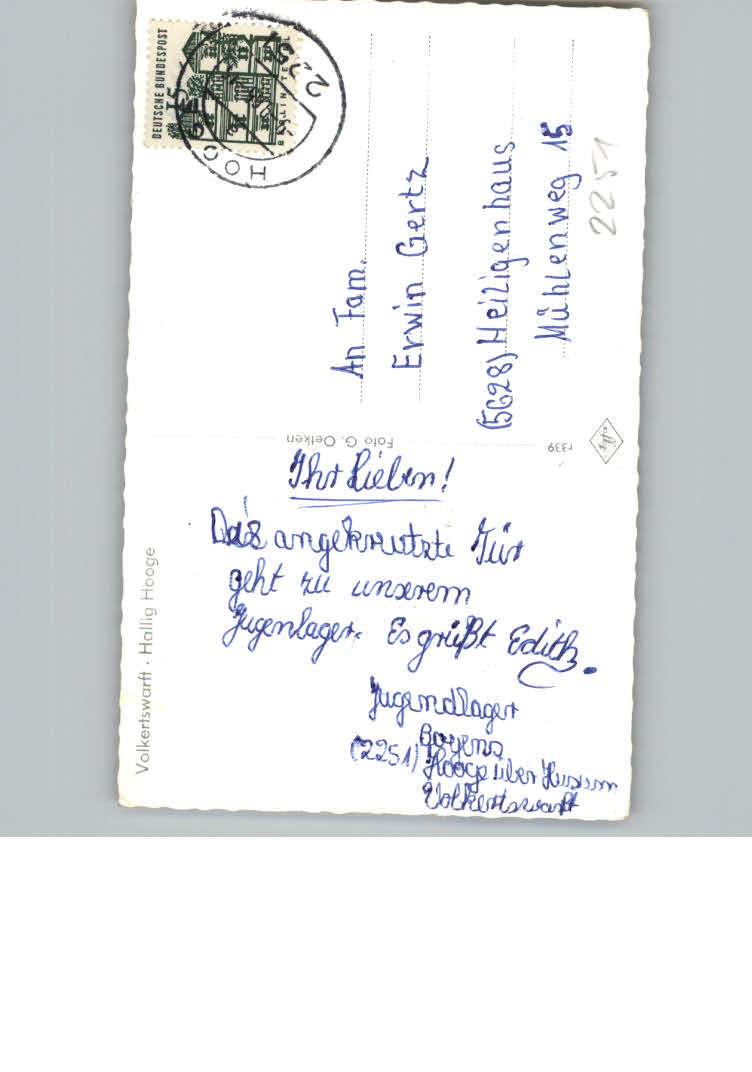 Volkertswarft · Hallig Hooge
Ihr Lieben!
Das angekreutzte Tür
geht zu unserem
Jugenlager. Es grüßt Edith.
Jugendlager
Boyens
(2251) Hooge über Husum
Volkertswarft
Foto G. Oetken
r339
DEUTSCHE BUNDESPOST
15
2251
HOOGE
An Fam.
Erwin Gertz
(5628) Heiligenhaus
Mühlenweg 15
2251